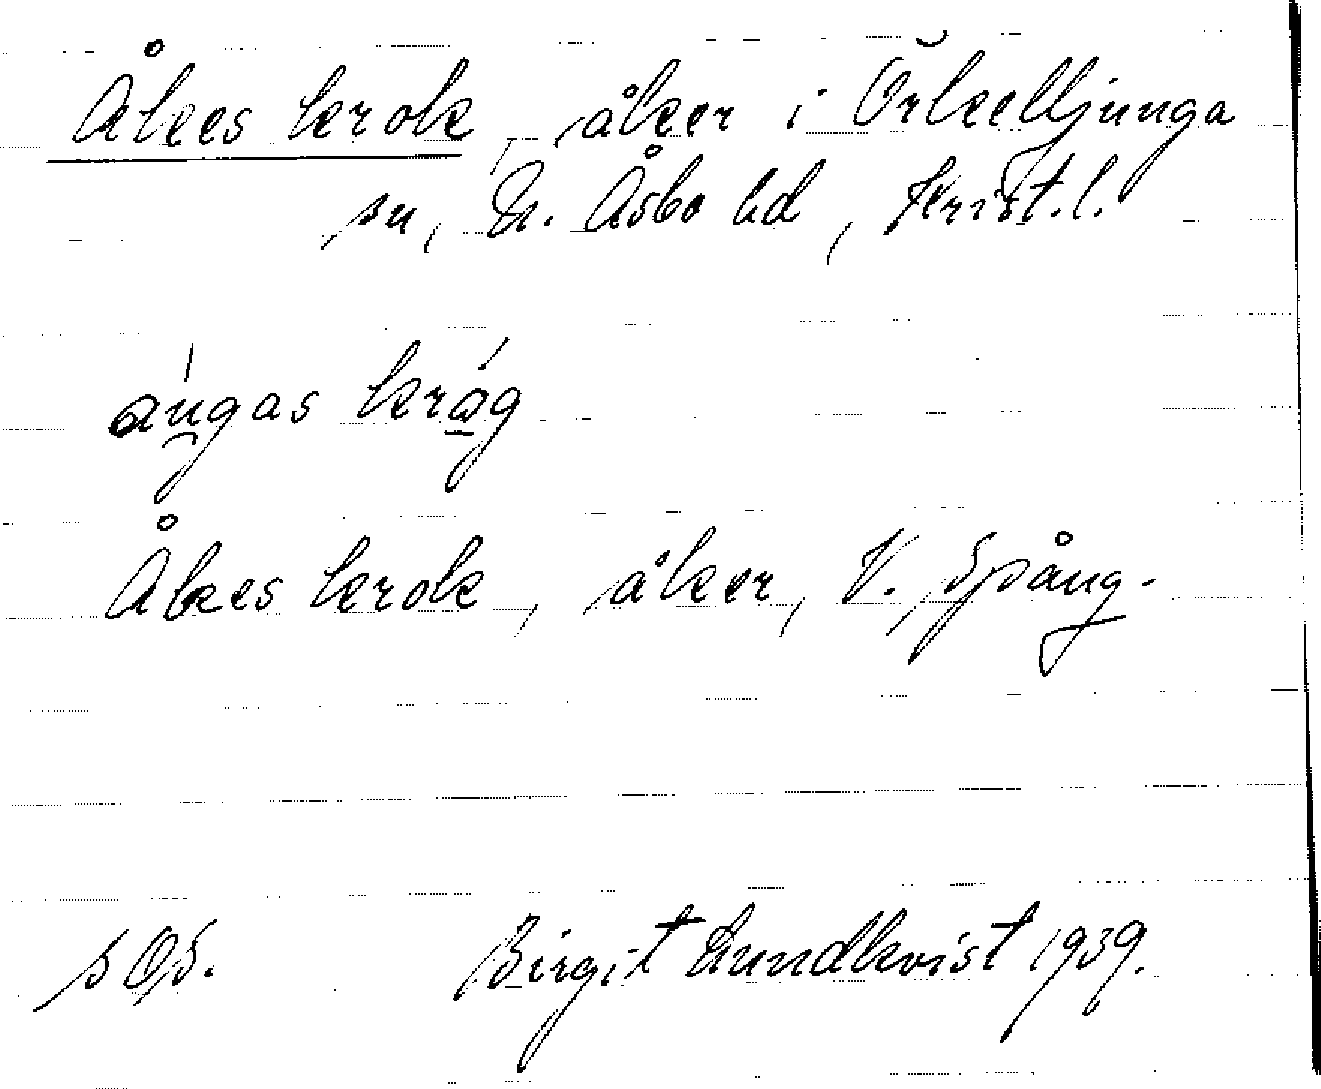 Åkes krok, åker i Örkelljunga
sn, N. Åsbo hd, Krist. l.
áu̯gas krǻ̱g
Åkes krok, åker, V. Spång.
Birgit Lundkvist 1939.